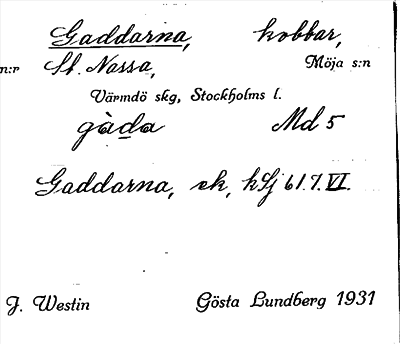 Gaddarna, kobbar,
n:r St. Nassa, Möja s:n
Värmdö skg, Stockholms l.
gàda Md 5
Gaddarna, sk, kSj 61.7.VI.
J. Westin Gösta Lundberg 1931